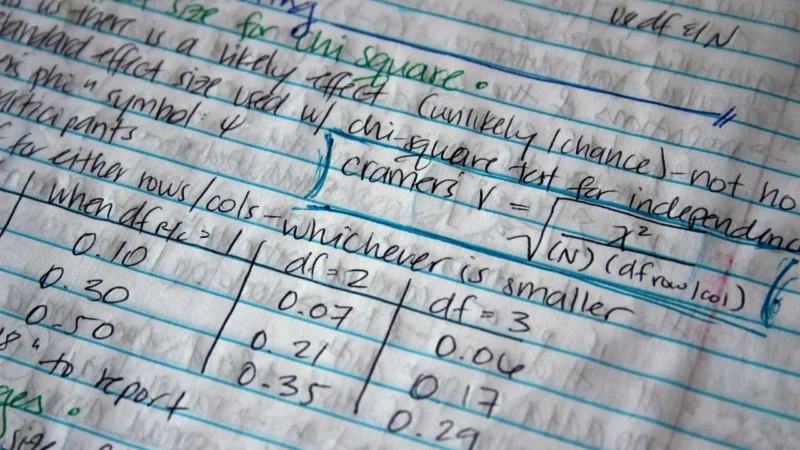 use df & N
size for chi square.
there is a likely effect (unlikely / chance) - not no
standard effect size used w/ chi-square test for independence
phi" symbol: φ
cramers' V = √ x² / (N) (df row/col)
participants
for either rows/cols - whichever is smaller
when df r/c = 1 df = 2 df = 3
0.10 0.07 0.06
0.30 0.21 0.17
0.50 0.35 0.29
" to report